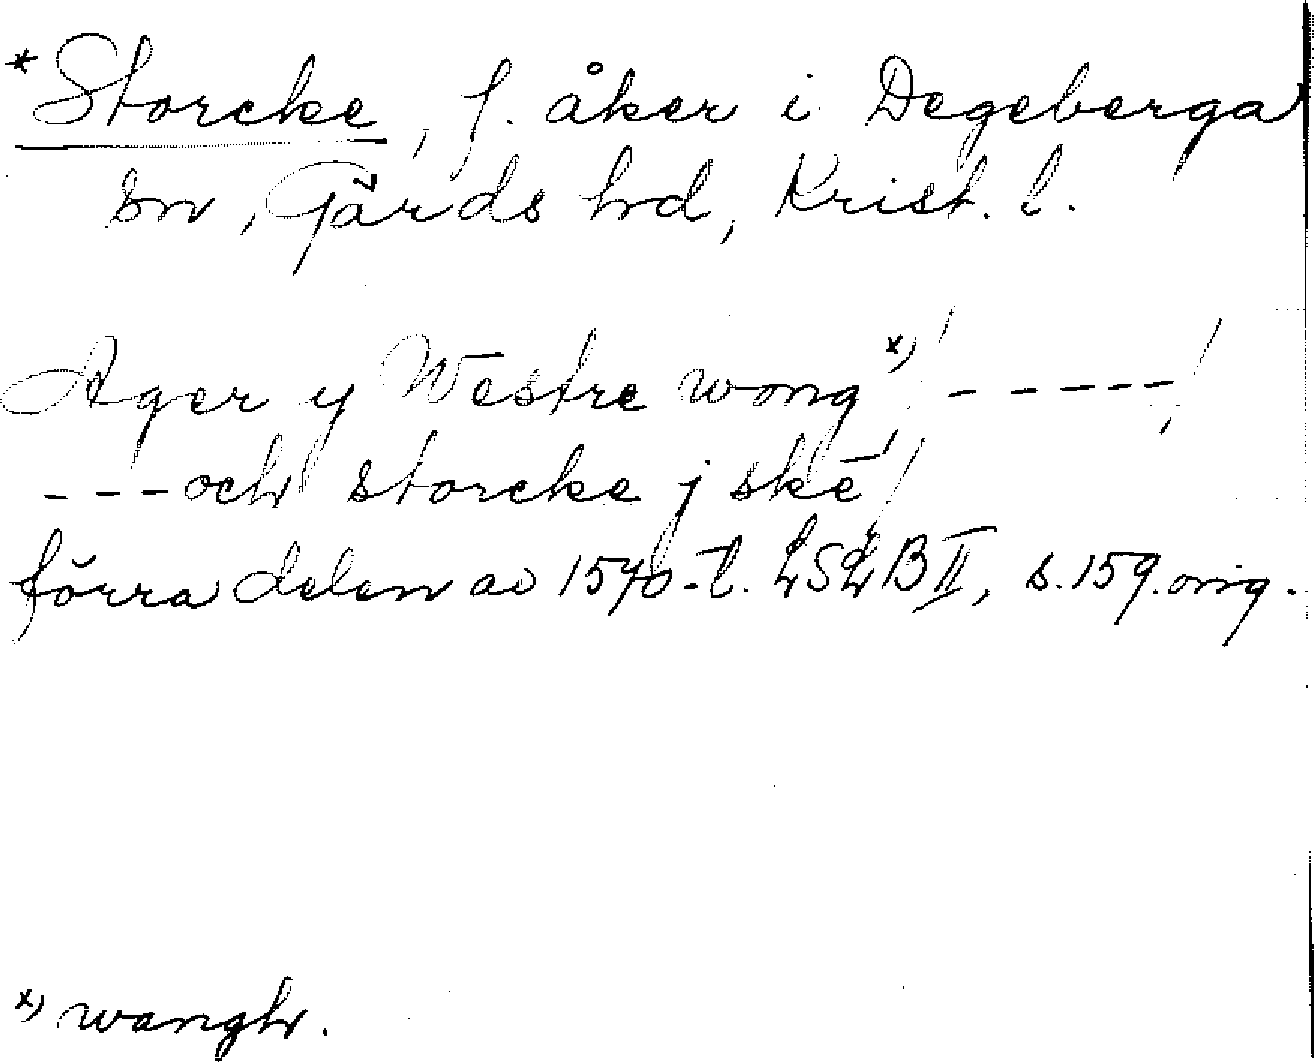 *Storcke, f. åker i Degeberga
sn, Gärds hd, Krist. l.
Ager y Westre wong x) / - - - - - /
- - - och storcke j skē /
förra delen av 1570-t. LSLB II, s. 159. orig.
x) wangh.